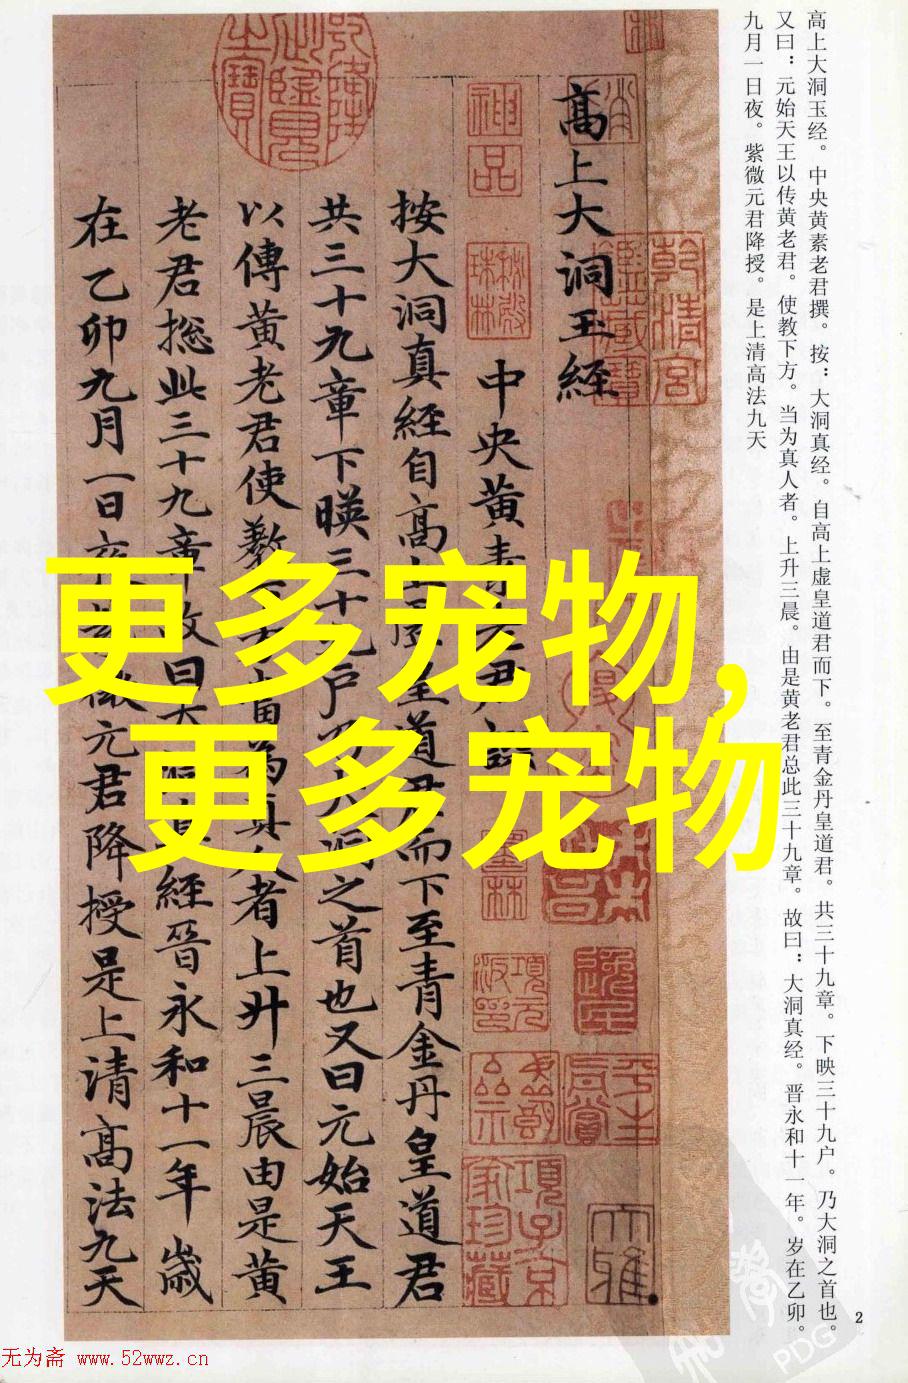 高上大洞玉经。中央黄素老君撰。按：大洞真经。自高上虚皇道君而下。至青金丹皇道君。共三十九章。下映三十九户。乃大洞之首也。
又曰：元始天王以传黄老君。使教下方。当为真人者。上升三晨。由是黄老君总此三十九章。故曰：大洞真经。晋永和十一年。岁在乙卯。
九月一日夜。紫微元君降授。是上清高法九天
高上大洞玉經
中央黄素老君
按大洞真經自高上至道君而下至青金丹皇道君
共三十九章下暎三十九户乃大洞之首也又曰元始天王
以傳黄老君使教下方當為真人者上升三晨由是黄
老君捴此三十九章故曰大洞真經晉永和十一年歲
在乙卯九月一日夜紫微元君降授是上清高法九天
神品
乾清宫鑑藏寶
更多宠物,
更多宠物
2
PDG
无为斋 www.52wwz.cn